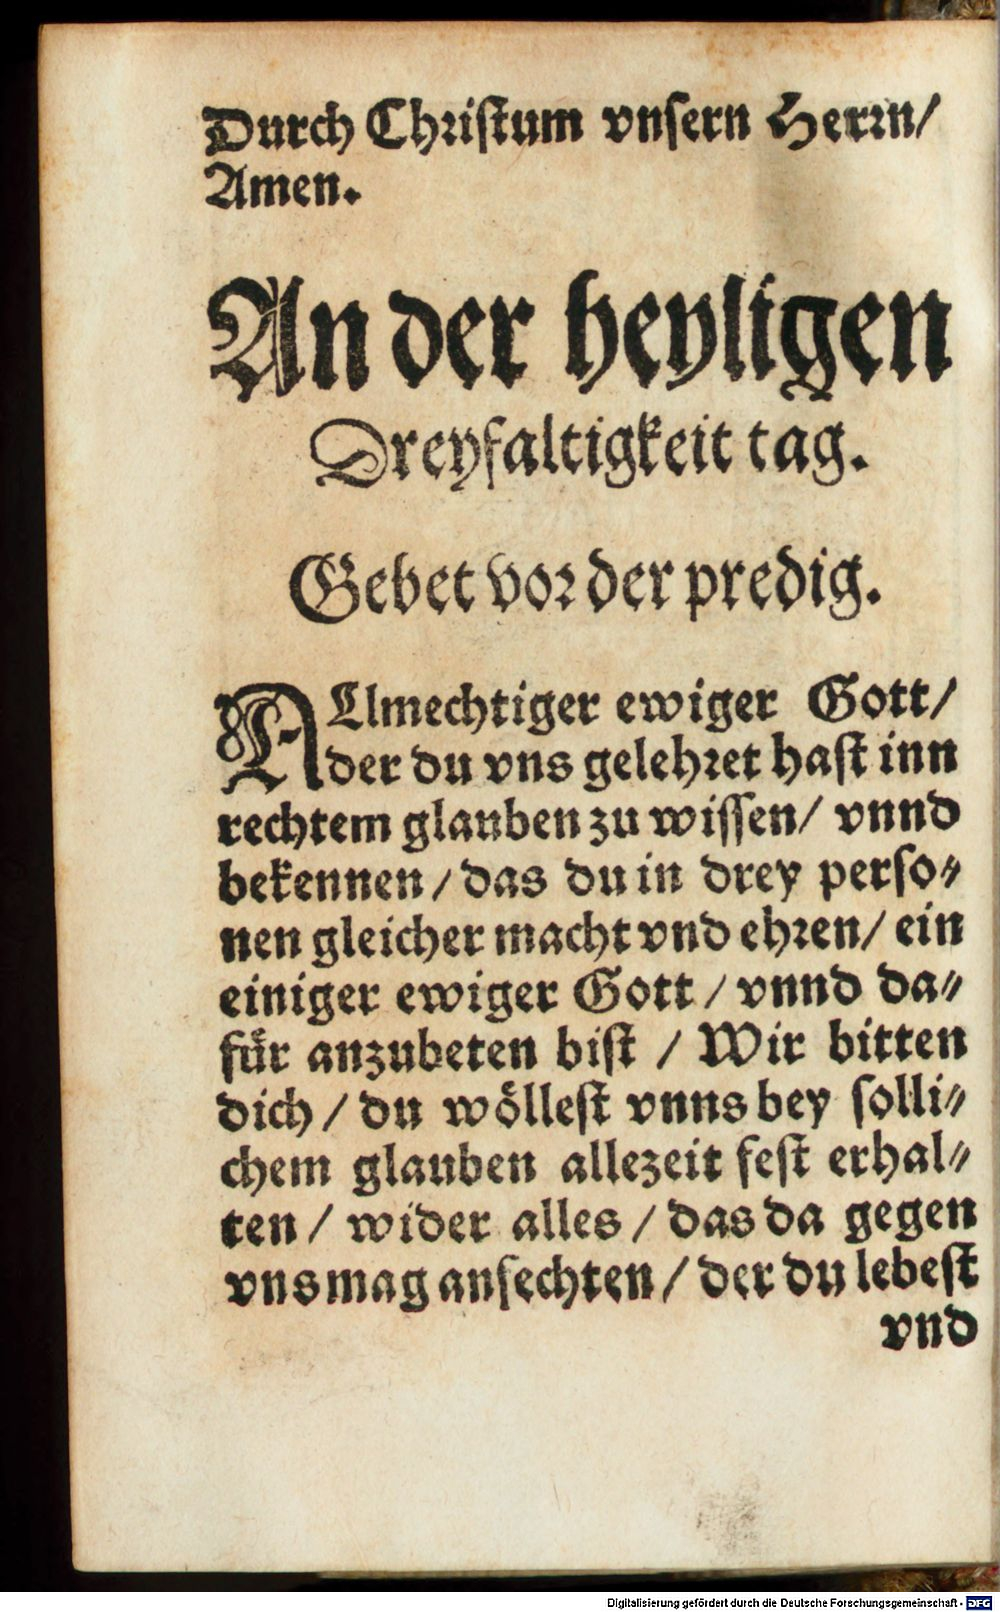 Durch Christum vnsern Herrn/
Amen.
An der heyligen
Dreyfaltigkeit tag.
Gebet vor der predig.
ALlmechtiger ewiger Gott/
der du vns gelehret hast inn
rechtem glauben zu wissen/ vnnd
bekennen/ das du in drey perso⸗
nen gleicher macht vnd ehren/ ein
einiger ewiger Gott/ vnnd da⸗
für anzubeten bist / Wir bitten
dich/ du wöllest vnns bey solli⸗
chem glauben allezeit fest erhal⸗
ten/ wider alles/ das da gegen
vns mag anfechten/ der du lebest
vnd
Digitalisierung gefördert durch die Deutsche Forschungsgemeinschaft - DFG